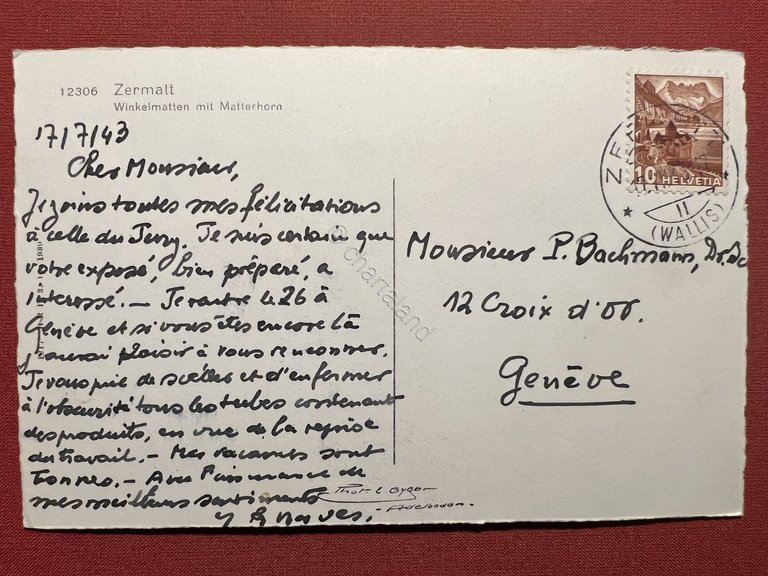 12306 Zermatt
Winkelmatten mit Matterhorn
17/7/43
Cher Monsieur,
Je joins toutes mes félicitations
à celle du Jury. Je suis certain que
votre exposé, bien préparé, a
intéressé. — Je rentre le 26 à
Genève et si vous êtes encore là
j'aurai plaisir à vous rencontrer.
Je vous prie de sceller et d'enfermer
à l'obscurité tous les tubes contenant
des produits, en vue de la reprise
du travail. — Mes vacances sont
bonnes. — Avec l'assurance de
mes meilleurs sentiments
10 HELVETIA
II
(WALLIS)
Monsieur P. Bachmann, Dr. Sc
12 Croix d'Or.
Genève
Phot. E. Gyger
Adelboden
© chartaland